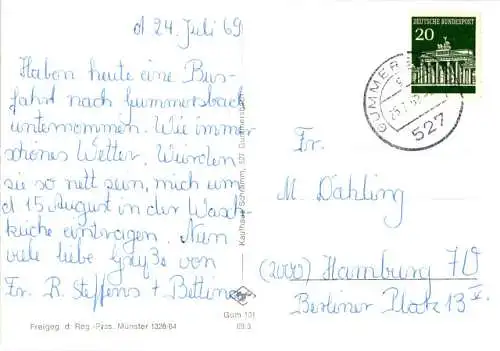 d 24. Juli 69
Habon heute eine Bus-
fahrt nach Gummersbach
unternommen. Wie immer
schönes Wetter. Würden
sie so nett sein, mich am
d 15 August in der Wasch
küche eintragen. Nun
viele liebe Grüße von
Fr. R. Steffens + Bettina
Freigeg. d. Reg.-Präs. Münster 1326/64
Gum 101
Kaufhaus Schramm, 527 Gummersbach
DEUTSCHE BUNDESPOST
20
GUMMERS
527
Fr.
M. Dahling
(2000) Hamburg 70
Berliner Platz 13 V.